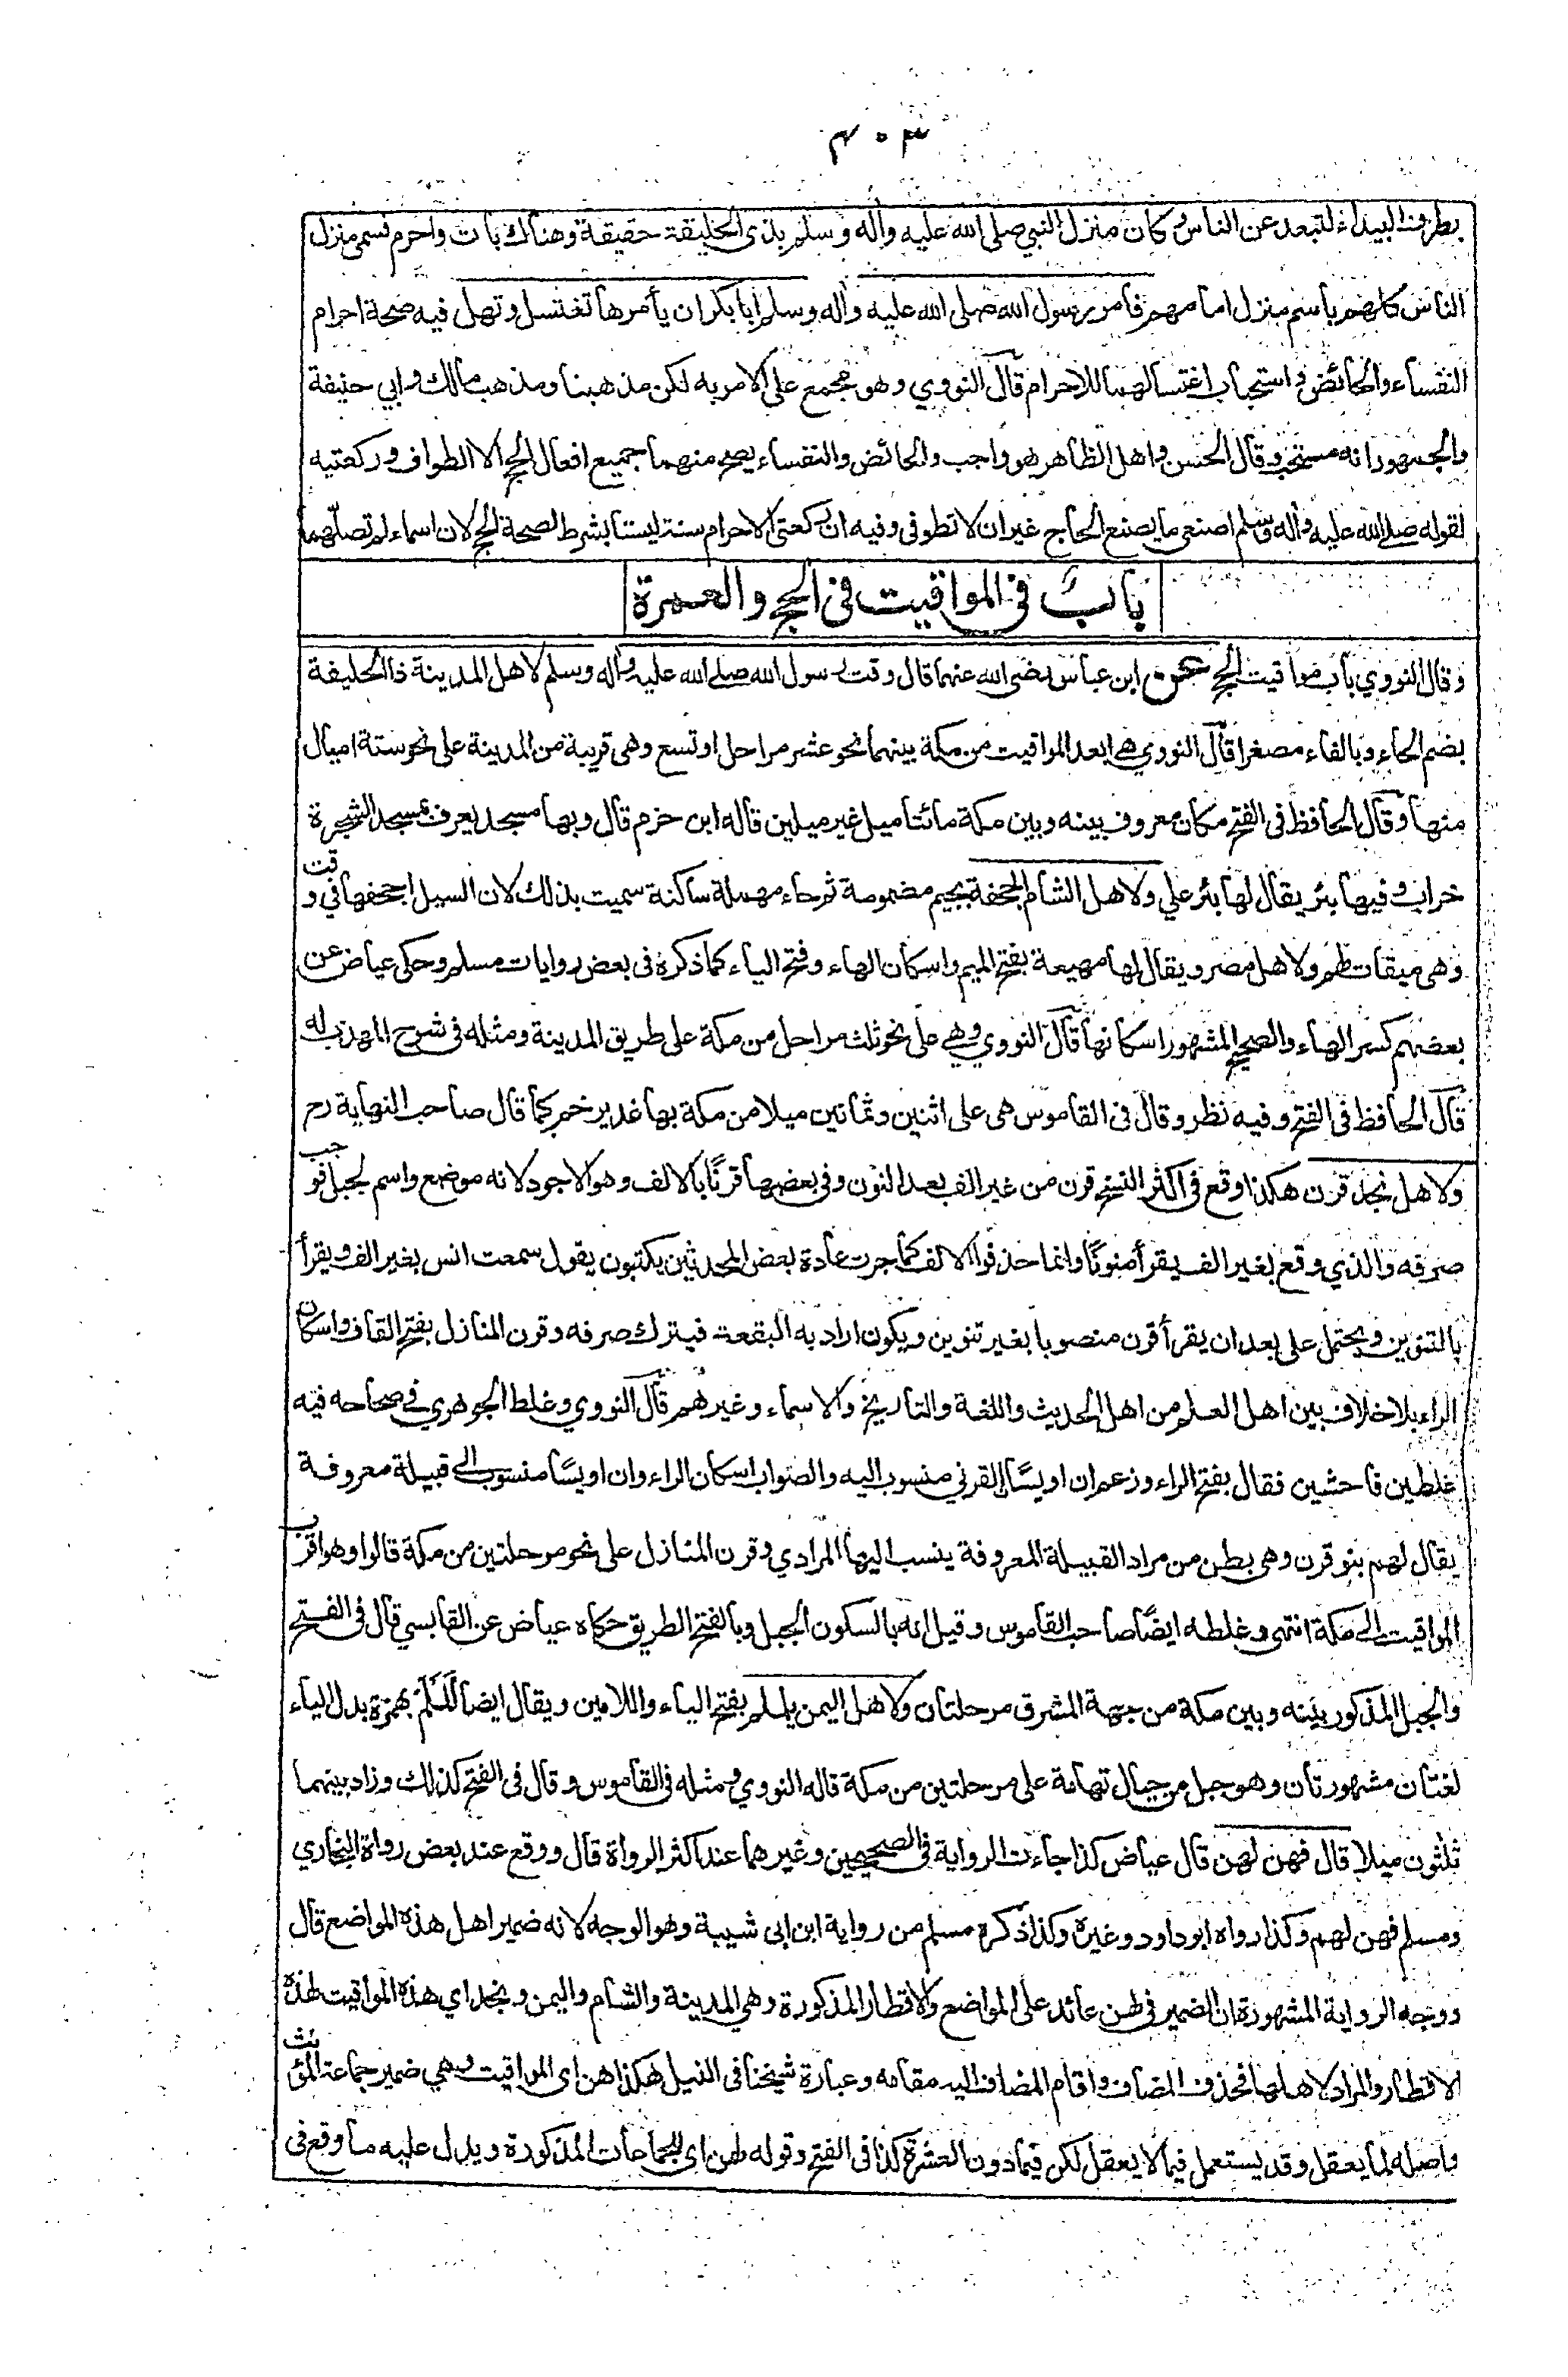 ٤٠٣
بطرف البيداء لتبعد عن الناس وكان منزل النبي صلى الله عليه واله وسلم بذي الحليفة حقيقة وهناك بات واحرم فسمى منزل
الناس كلهم باسم منزل امامهم فامر رسول الله صلى الله عليه واله وسلم ابا بكر ان يأمرها تغتسل وتهل فيه صحة احرام
النفساء والحائض واستحباب اغتسالهما للاحرام قال النووي وهو مجمع على الامر به لكن مذهبنا ومذهب مالك وابي حنيفة
والجمهور انه مستحب وقال الحسن واهل الظاهر هو واجب والحائض والنفساء يصح منهما جميع افعال الحج الا الطواف وركعتيه
لقوله صلى الله عليه واله وسلم اصنعي ما يصنع الحاج غير ان لا تطوفي وفيه ان ركعتي الاحرام سنة ليستا بشرط لصحة الحج لان اسماء لم تصلهما
باب في المواقيت في الحج والعمرة
وقال النووي باب مواقيت الحج عن ابن عباس رضي الله عنهما قال وقت رسول الله صلى الله عليه واله وسلم لاهل المدينة ذا الحليفة
بضم الحاء وبالفاء مصغرا قال النووي هي ابعد المواقيت من مكة بينهما نحو عشر مراحل او تسع وهى قريبة من المدينة على نحو ستة اميال
منها وقال الحافظ في الفتح مكان معروف بينه وبين مكة مائتا ميل غير ميلين قاله ابن حزم قال وبها مسجد يعرف بمسجد الشجرة
خراب وفيها بئر يقال لها بئر علي ولاهل الشام الجحفة بجيم مضمومة ثم حاء مهملة ساكنة سميت بذلك لان السيل اجحفها في وقت
وهى ميقات لهم ولاهل مصر ويقال لها مهيعة بفتح الميم واسكان الهاء وفتح الياء كما ذكره في بعض روايات مسلم وحكى عياض عن
بعضهم كسر الهاء والصحيح المشهور اسكانها قال النووي وهي على نحو ثلث مراحل من مكة على طريق المدينة ومثله في شرح المهذب له
قال الحافظ في الفتح وفيه نظر وقال في القاموس هى على اثنين وثمانين ميلا من مكة بها غدير خم كما قال صاحب النهاية رح
ولاهل نجد قرن هكذا وقع في اكثر النسخ قرن من غير الف بعد النون وفي بعضها قرنًا بالالف وهو الاجود لانه موضع واسم لجبل فوجب
صرفه والذي وقع بغير الف يقرأ منونًا وانما حذفوا الالف كما جرت عادة بعض المحدثين يكتبون يقول سمعت انس بغير الف ويقرأ
بالتنوين ويحتمل على بعد ان يقرأ قرن منصوبا بغير تنوين ويكون اراد به البقعة فيترك صرفه وقرن المنازل بفتح القاف واسكان
الراء بلا خلاف بين اهل العلم من اهل الحديث واللغة والتاريخ والاسماء وغيرهم قال النووي وغلط الجوهري في صحاحه فيه
غلطين فاحشين فقال بفتح الراء وزعم ان اويسًا القرني منسوب اليه والصواب اسكان الراء وان اويسًا منسوب الى قبيلة معروفة
يقال لهم بنو قرن وهى بطن من مراد القبيلة المعروفة ينسب اليها المرادي وقرن المنازل على نحو مرحلتين من مكة قالوا وهو اقرب
المواقيت الى مكة انتهى وغلطه ايضًا صاحب القاموس وقيل انه بالسكون الجبل وبالفتح الطريق حكاه عياض عن القابسي قال في الفتح
والجبل المذكور بينه وبين مكة من جهة المشرق مرحلتان ولاهل اليمن يلملم بفتح الياء واللامين ويقال ايضا أَلَمْلَمْ بهمزة بدل الياء
لغتان مشهورتان وهو جبل من جبال تهامة على مرحلتين من مكة قاله النووي ومثله في القاموس وقال في الفتح كذلك وزاد بينهما
ثلثون ميلا قال فهن لهن قال عياض كذا جاءت الرواية في الصحيحين وغيرهما عند اكثر الرواة قال ووقع عند بعض رواة البخاري
ومسلم فهن لهم وكذا رواه ابو داود وغيره وكذا ذكره مسلم من رواية ابن ابي شيبة وهو الوجه لانه ضمير اهل هذه المواضع قال
ووجه الرواية المشهورة ان الضمير في لهن عائد على المواضع والاقطار المذكورة وهي المدينة والشام واليمن ونجد اي هذه المواقيت لهذه
الاقطار والمراد لاهلها فحذف المضاف واقام المضاف اليه مقامه وعبارة شيخنا في النيل هكذا هن اى المواقيت وهي ضمير جماعة المؤنث
واصله لما يعقل وقد يستعمل فيما لا يعقل لكن فيما دون العشرة كذا في الفتح وقوله لهن اى للجماعات المذكورة ويدل عليه ما وقع في